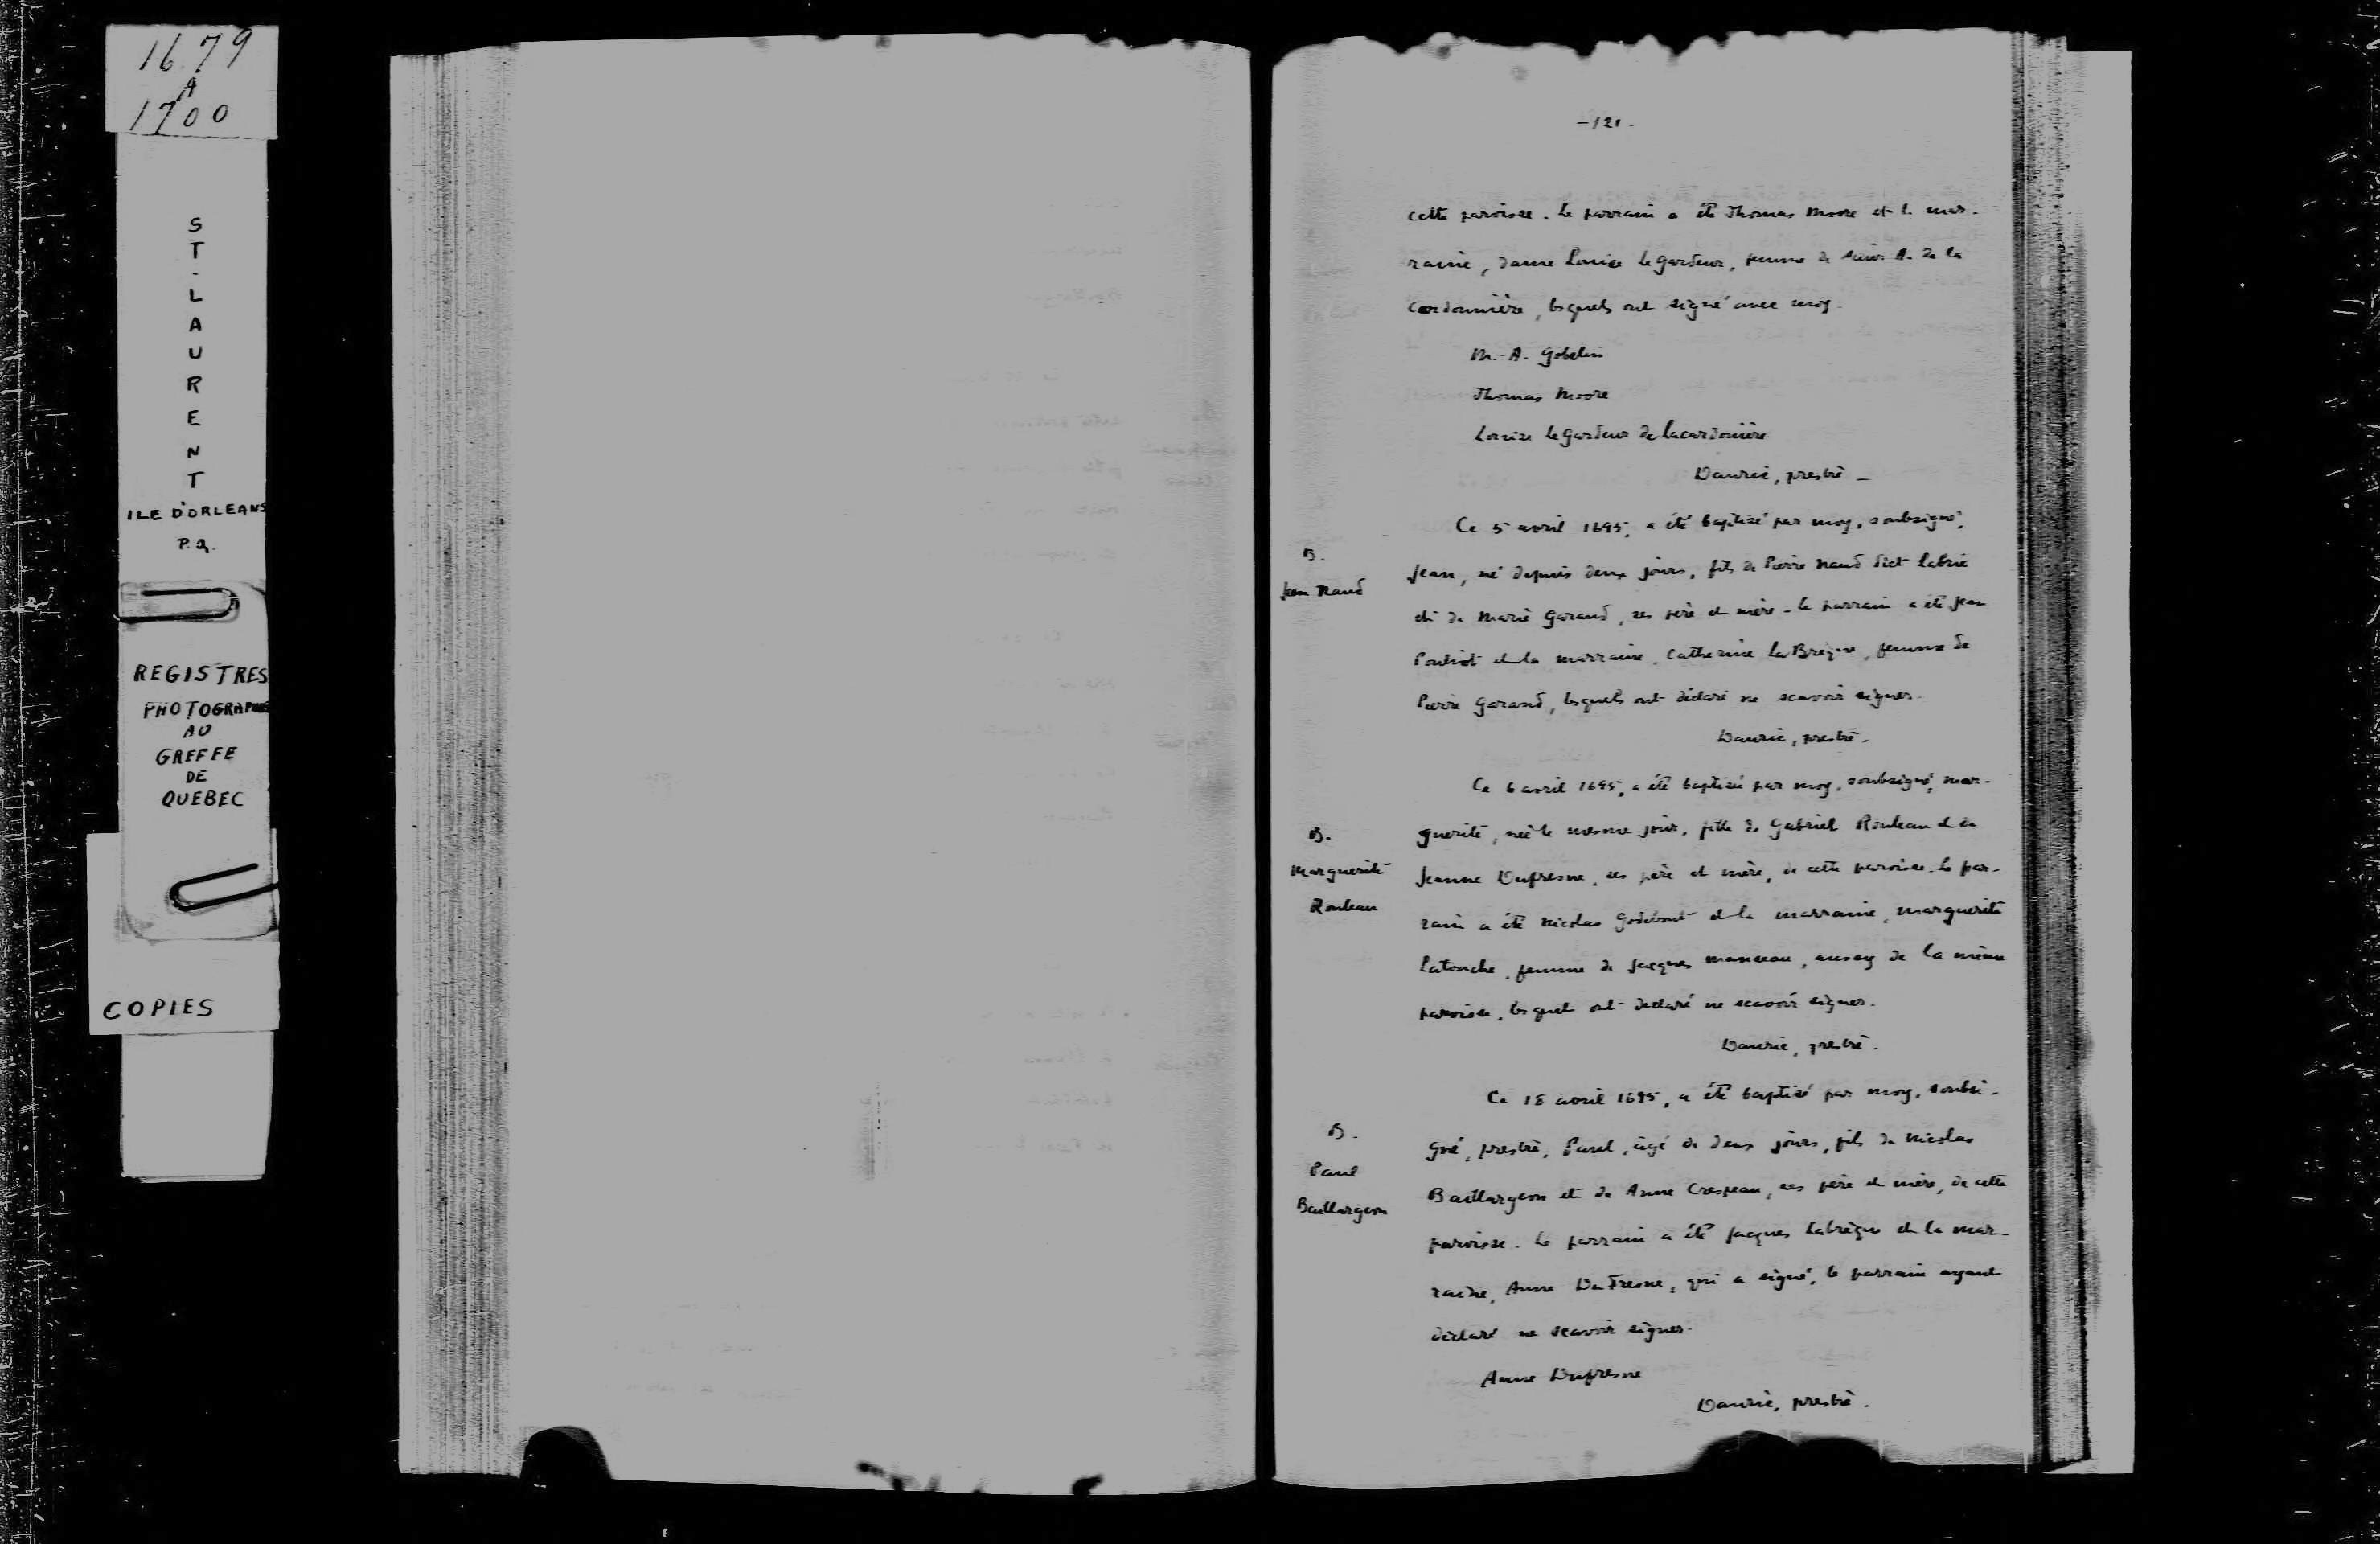 1679
A
1700
ST-LAURENT
ILE D'ORLEANS
P.Q.
REGISTRES
PHOTOGRAPHIES
AU
GREFFE
DE
QUEBEC
COPIES
-121-
cette paroisse. Le parrain a été Thomas Moore et l. mar-
raine, dame Louise Legardeur, femme de A. de la
Cardonnière, lesquels ont signé avec moy.
M.-A. Gobelin
Thomas Moore
Louise Legardeur de Lacardonière
Dauric, prestre -
Ce 5 avril 1695, a été baptisé par moy, soubsigné,
B.
Jean Naud
Jean, né depuis deux jours, fils de Pierre Naud dict Labrie
et de Marie Garand, ses père et mère - le parrain a été Jean
Pouliot et la marraine, Catherine LaBrèque, femme de
Pierre Garand, lesquels ont déclaré ne scavoir signer.
Dauric, prestre.
Ce 6 avril 1695, a été baptisée par moy, soubsigné, Mar-
B.
Marguerite
Rouleau
guerite, née le mesme jour, fille de Gabriel Rouleau et de
Jeanne Dufresne, ses père et mère, de cette paroisse. Le par-
rain a été Nicolas Godebout et la marraine, Marguerite
Latouche, femme de Jacques Manseau, aussy de la même
paroisse, lesquels ont declaré ne scavoir signer.
Dauric, prestre.
Ce 18 avril 1695, a été baptisé par moy, soubsi-
B.
Paul
Baillargeon
gné, prestre, Paul, âgé de deux jours, fils de Nicolas
Baillargeon et de Anne Crespeau, ses père et mère, de cette
paroisse. Le parrain a été Jacques Labrèque et la mar-
raine, Anne Dufresne, qui a signé, le parrain ayant
déclaré ne scavoir signer.
Anne Dufresne
Dauric, prestre.